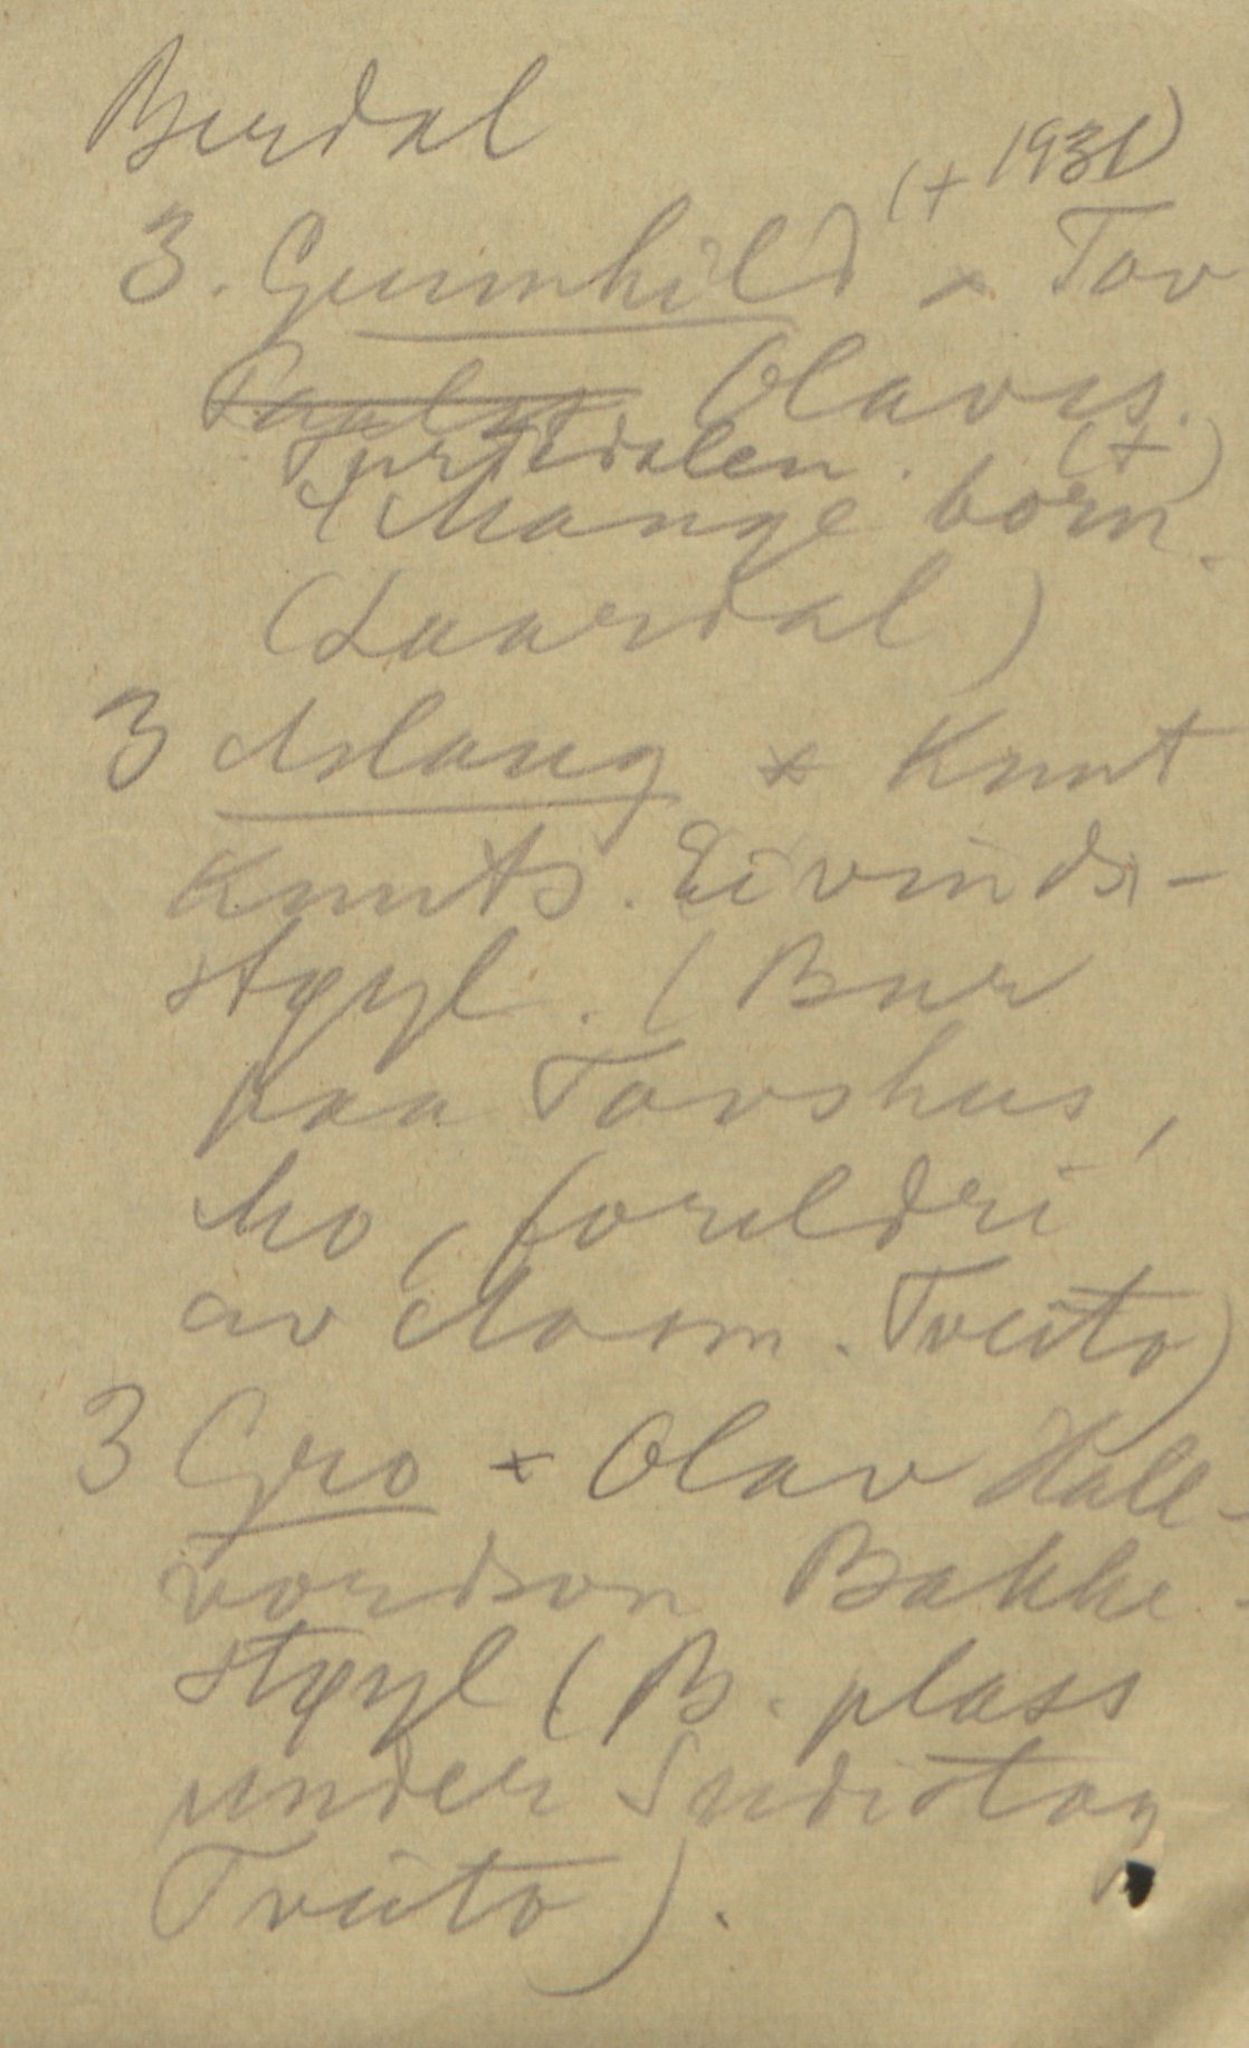 Berdal
(+ 1931)
3. Gunnhild × Tov
Olavss.
Turtedalen. (+)
(Mange born.
(Laardal)
3 Aslaug × Knut
Knuts. Eivinds-
støyl. (Bur
paa Tovshus,
Mo, foreldri
av Aasm. Tveito)
3 Gro + Olav Hall-
vordson Bakke-
støyl (B. plass
under Sudistog
Tveito).